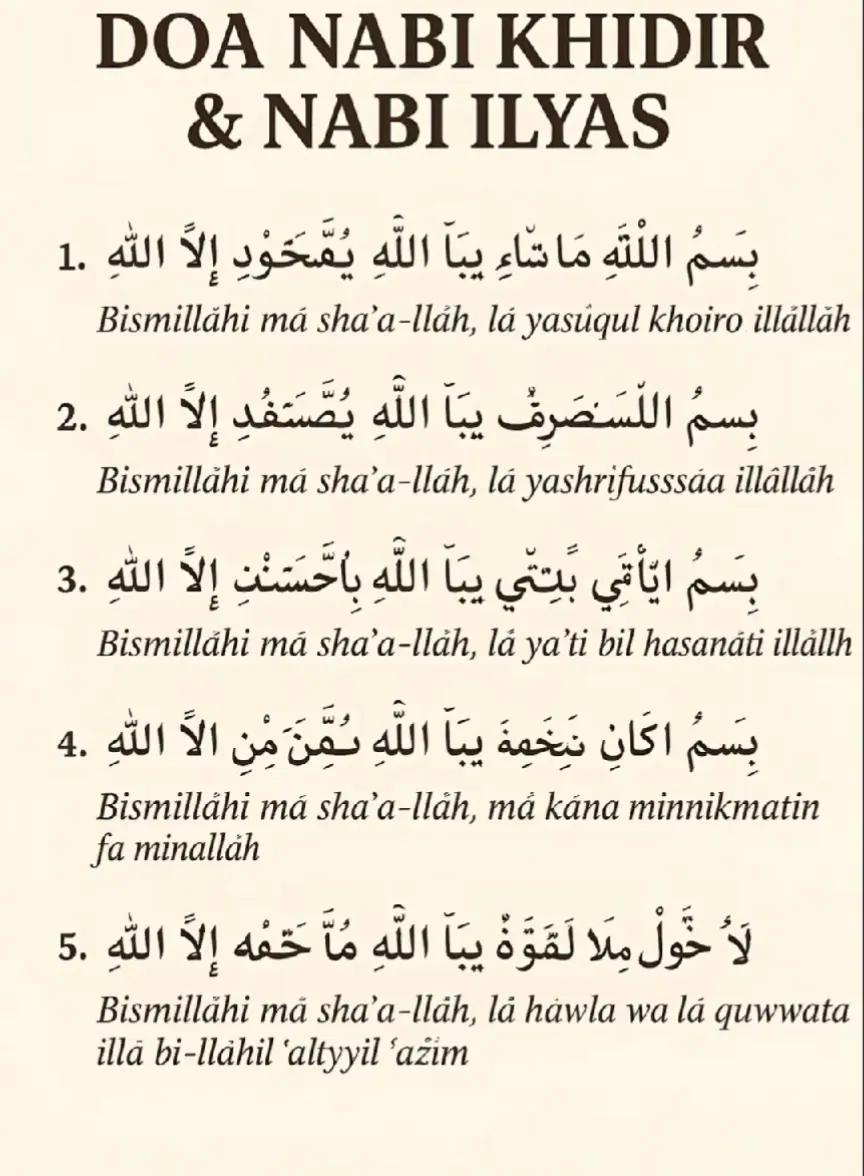 DOA NABI KHIDIR
& NABI ILYAS
1. بِسَمُ اللْتَهِ مَا شَاءِ يبَآ اللَّهِ يُقَحَوْدِ إِلاَّ اللهِ
Bismillāhi má sha’a-llāh, lá yasúqul khoiro illállāh
2. بِسمُ اللّسَنصَرِفُ يبَآ اللَّهِ يُصَّسَتفُدِ إِلاَّ اللهِ
Bismillāhi má sha’a-lláh, lá yashrifusssáa illâllâh
3. بِسَمُ ايّاْقِي بًتِتْي يبَآ اللَّهِ بِاُحَّسَنْتِ إِلاَّ اللهِ
Bismilláhi má sha’a-llâh, lá ya’ti bil hasanáti illállh
4. بِسَمُ اكَانِ نَبِخَهِةَ يبَآ اللَّهِ نُقَّنَ مْنِ الاَّ اللهِ
Bismilláhi má sha’a-llâh, má kána minnikmatin
fa minalláh
5. لَا حَّولْ مِلَا لَقَوَّةٌ يبَآ اللَّهِ مُاَّ حَّفْه إِلاَّ اللهِ
Bismillāhi má sha’a-llâh, lá háwla wa lá quwwata
illā bi-llāhil ‘altyyil ‘aẓīm